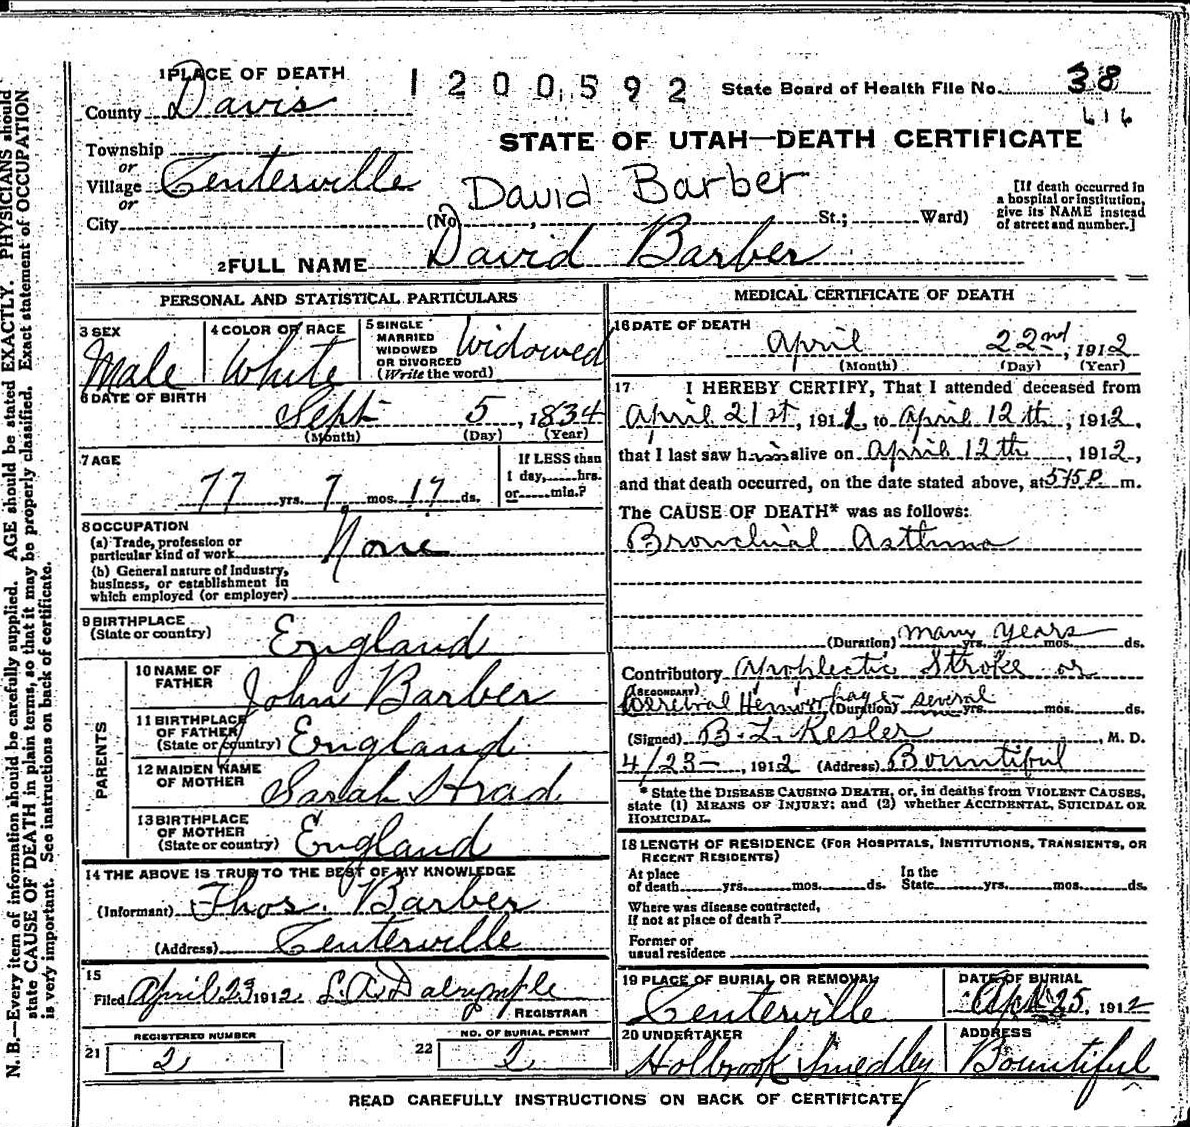 N. B.—Every item of information should be carefully supplied. AGE should be stated EXACTLY. PHYSICIANS should
state CAUSE OF DEATH in plain terms, so that it may be properly classified. Exact statement of OCCUPATION
is very important. See instructions on back of certificate.
1 PLACE OF DEATH
1200592
State Board of Health File No. 38
616
County Davis
STATE OF UTAH—DEATH CERTIFICATE
Township
or
Village Centerville
or
City
David Barber
(No. , St.; Ward)
[If death occurred in
a hospital or institution,
give its NAME instead
of street and number.]
2 FULL NAME David Barber
PERSONAL AND STATISTICAL PARTICULARS
3 SEX
Male
4 COLOR OR RACE
White
5 SINGLE
MARRIED
WIDOWED
OR DIVORCED
(Write the word)
Widowed
6 DATE OF BIRTH
Sept 5, 1834
(Month) (Day) (Year)
7 AGE
77 yrs. 7 mos. 17 ds.
If LESS than
1 day, hrs.
or min.?
8 OCCUPATION
(a) Trade, profession or
particular kind of work None
(b) General nature of Industry,
business, or establishment in
which employed (or employer)
9 BIRTHPLACE
(State or country) England
PARENTS
10 NAME OF
FATHER John Barber
11 BIRTHPLACE
OF FATHER
(State or country) England
12 MAIDEN NAME
OF MOTHER Sarah Strad
13 BIRTHPLACE
OF MOTHER
(State or country) England
14 THE ABOVE IS TRUE TO THE BEST OF MY KNOWLEDGE
(Informant) Thos. Barber
(Address) Centerville
15
Filed April 23 1912. L. A. Dalrymple
REGISTRAR
REGISTERED NUMBER
21 2
NO. OF BURIAL PERMIT
22 2
MEDICAL CERTIFICATE OF DEATH
16 DATE OF DEATH
April 22nd, 1912
(Month) (Day) (Year)
17 I HEREBY CERTIFY, That I attended deceased from
April 21st, 191 , to April 12th, 1912,
that I last saw him alive on April 12th, 1912,
and that death occurred, on the date stated above, at 515 P m.
The CAUSE OF DEATH* was as follows:
Bronchial Asthma
(Duration) many years yrs. mos. ds.
Contributory Apoplectic Stroke or
(SECONDARY)
Cerebral Hemorrhage - several
(Duration) yrs. mos. ds.
(Signed) B. L. Kesler, M. D.
4/23-, 1912 (Address) Bountiful
* State the DISEASE CAUSING DEATH, or, in deaths from VIOLENT CAUSES,
state (1) MEANS OF INJURY; and (2) whether ACCIDENTAL, SUICIDAL OR
HOMICIDAL.
18 LENGTH OF RESIDENCE (FOR HOSPITALS, INSTITUTIONS, TRANSIENTS, OR
RECENT RESIDENTS)
At place
of death yrs. mos. ds.
In the
State yrs. mos. ds.
Where was disease contracted,
if not at place of death?
Former or
usual residence
19 PLACE OF BURIAL OR REMOVAL
Centerville
DATE OF BURIAL
Apr 25, 1912
20 UNDERTAKER
Holbrook Smedley
ADDRESS
Bountiful
READ CAREFULLY INSTRUCTIONS ON BACK OF CERTIFICATE